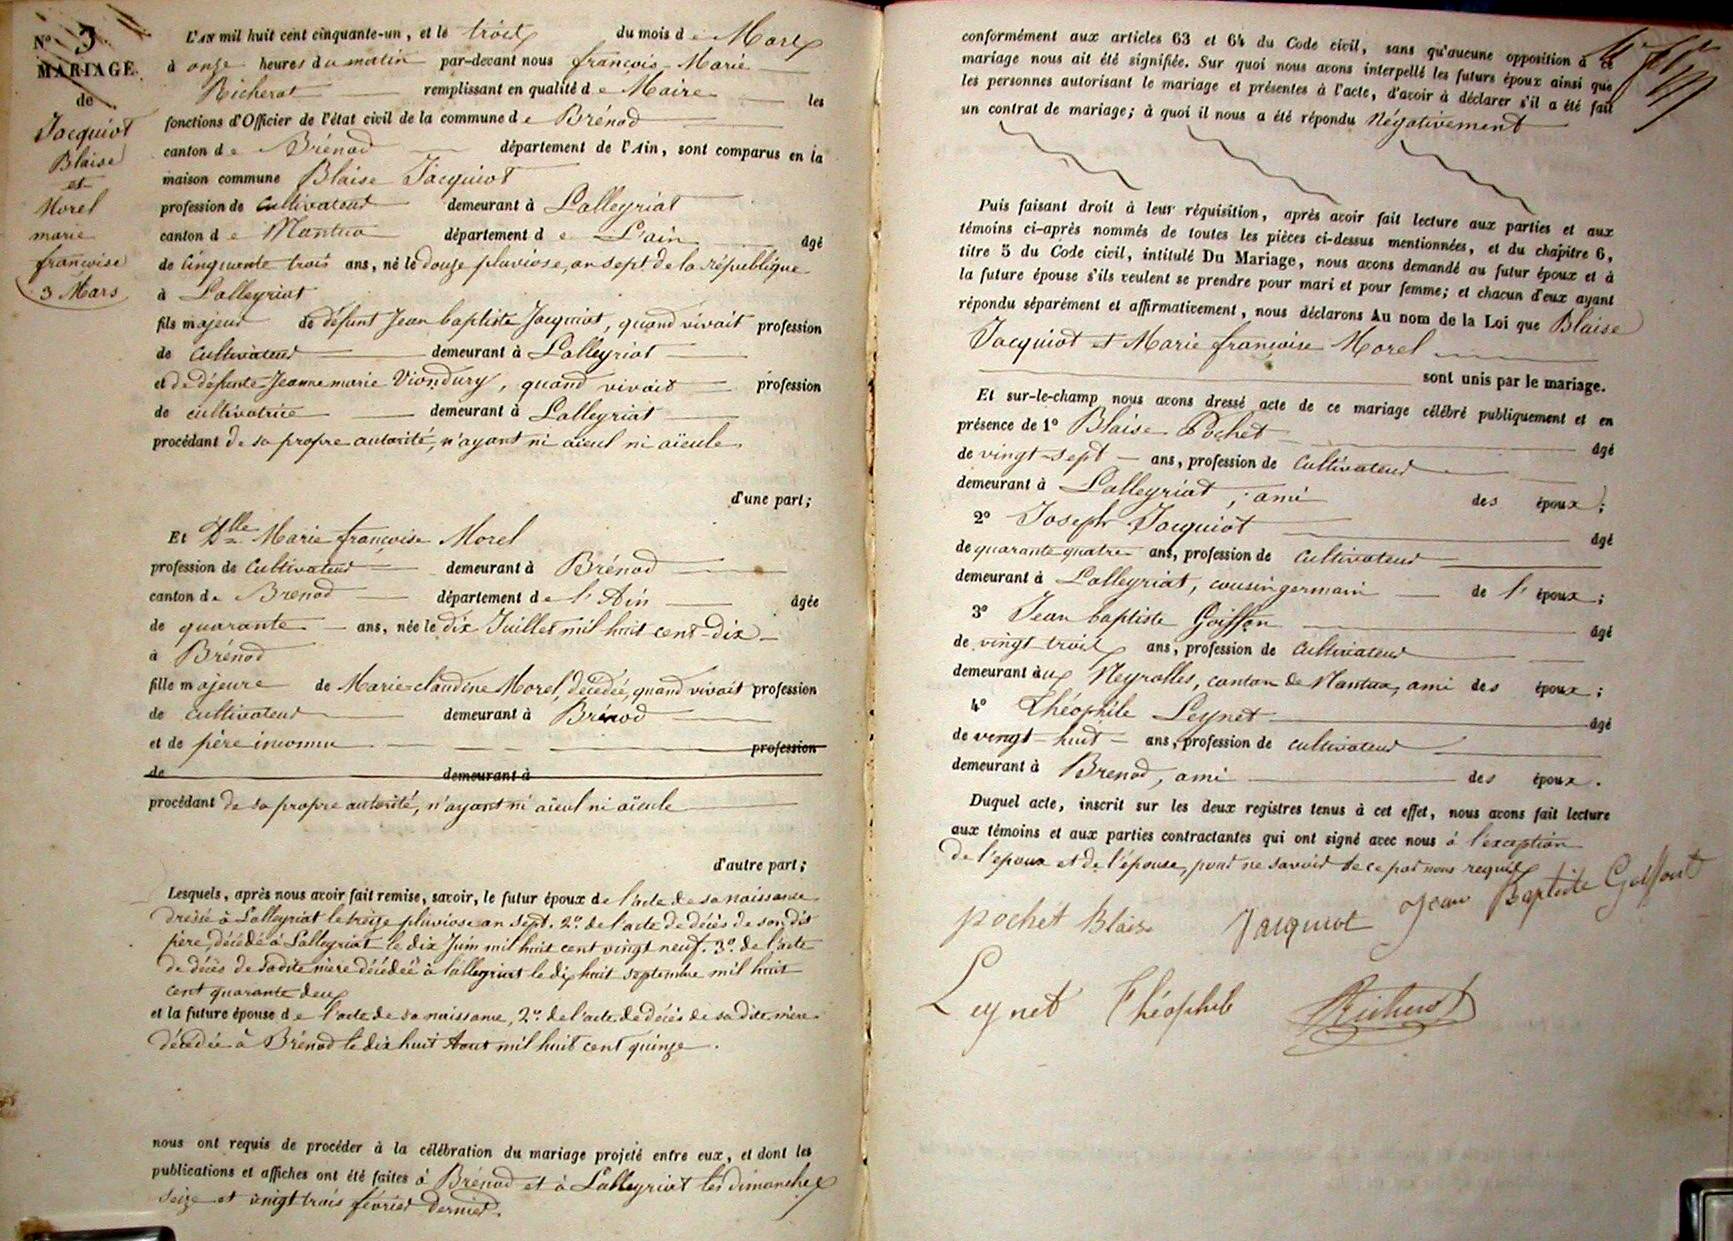 N.° 3
MARIAGE
de
Jacquiot
Blaise
et
Morel
marie
françoise
3 Mars
L'AN mil huit cent cinquante-un, et le trois du mois de Mars
à onze heures du matin par-devant nous françois Marie
Richerot remplissant en qualité de Maire les
fonctions d'Officier de l'état civil de la commune de Brénod
canton de Brénod département de l'Ain, sont comparus en la
maison commune Blaise Jacquiot
profession de cultivateur demeurant à Lalleyriat
canton de Nantua département de L'ain âgé
de cinquante trois ans, né le douze pluviose, an sept de la république
à Lalleyriat
fils majeur de défunt Jean baptiste Jacquiot, quand vivait profession
de cultivateur demeurant à Lalleyriat
et de défunte Jeanne marie Viondury, quand vivait profession
de cultivatrice demeurant à Lalleyriat
procédant de sa propre autorité, n'ayant ni aïeul ni aïeule
d'une part;
Et Dlle Marie françoise Morel
profession de Cultivateur demeurant à Brénod
canton de Brenod département de l'Ain âgée
de quarante ans, née le dix Juillet mil huit cent dix
à Brénod
fille majeure de Marie claudine Morel, décédée, quand vivait profession
de cultivateur demeurant à Brénod
et de père inconnu profession
de demeurant à
procédant de sa propre autorité, n'ayant ni aïeul ni aïeule
d'autre part;
Lesquels, après nous avoir fait remise, savoir, le futur époux de l'acte de sa naissance
dressé à Lalleyriat le treize pluviose an sept. 2.° de l'acte de décès de son dit
père, décédé à Lalleyriat le dix Juin mil huit cent vingt neuf. 3.° de l'acte
de décès de sadite mère décédée à lalleyriat le dix huit septembre mil huit
cent quarante deux
et la future épouse de l'acte de sa naissance, 2.° de l'acte de décès de sa dite mère
décédée à Brénod le dix huit Aout mil huit cent quinze.
nous ont requis de procéder à la célébration du mariage projeté entre eux, et dont les
publications et affiches ont été faites à Brénod et à Lalleyriat les dimanches
seize et vingt trois février dernier.
conformément aux articles 63 et 64 du Code civil, sans qu'aucune opposition à ce
mariage nous ait été signifiée. Sur quoi nous avons interpellé les futurs époux ainsi que
les personnes autorisant le mariage et présentes à l'acte, d'avoir à déclarer s'il a été fait
un contrat de mariage; à quoi il nous a été répondu Négativement
Puis faisant droit à leur réquisition, après avoir fait lecture aux parties et aux
témoins ci-après nommés de toutes les pièces ci-dessus mentionnées, et du chapitre 6,
titre 5 du Code civil, intitulé Du Mariage, nous avons demandé au futur époux et à
la future épouse s'ils veulent se prendre pour mari et pour femme; et chacun d'eux ayant
répondu séparément et affirmativement, nous déclarons Au nom de la Loi que Blaise
Jacquiot et Marie françoise Morel
sont unis par le mariage.
Et sur-le-champ nous avons dressé acte de ce mariage célébré publiquement et en
présence de 1° Blaise Pochet âgé
de vingt-sept ans, profession de cultivateur
demeurant à Lalleyriat, ami des époux;
2° Joseph Jacquiot âgé
de quarante quatre ans, profession de cultivateur
demeurant à Lalleyriat, cousin germain de l'époux;
3° Jean baptiste Goiffon âgé
de vingt trois ans, profession de cultivateur
demeurant aux Neyrolles, canton de Nantua, ami des époux;
4° Théophile Leynet âgé
de vingt-huit ans, profession de cultivateur
demeurant à Brenod, ami des époux.
Duquel acte, inscrit sur les deux registres tenus à cet effet, nous avons fait lecture
aux témoins et aux parties contractantes qui ont signé avec nous à l'exception
de l'époux et de l'épouse, pour ne savoir de ce par nous requis
pochet Blaise Jacquiot Jean Baptiste Goiffont
Leynet Théophile Richerot